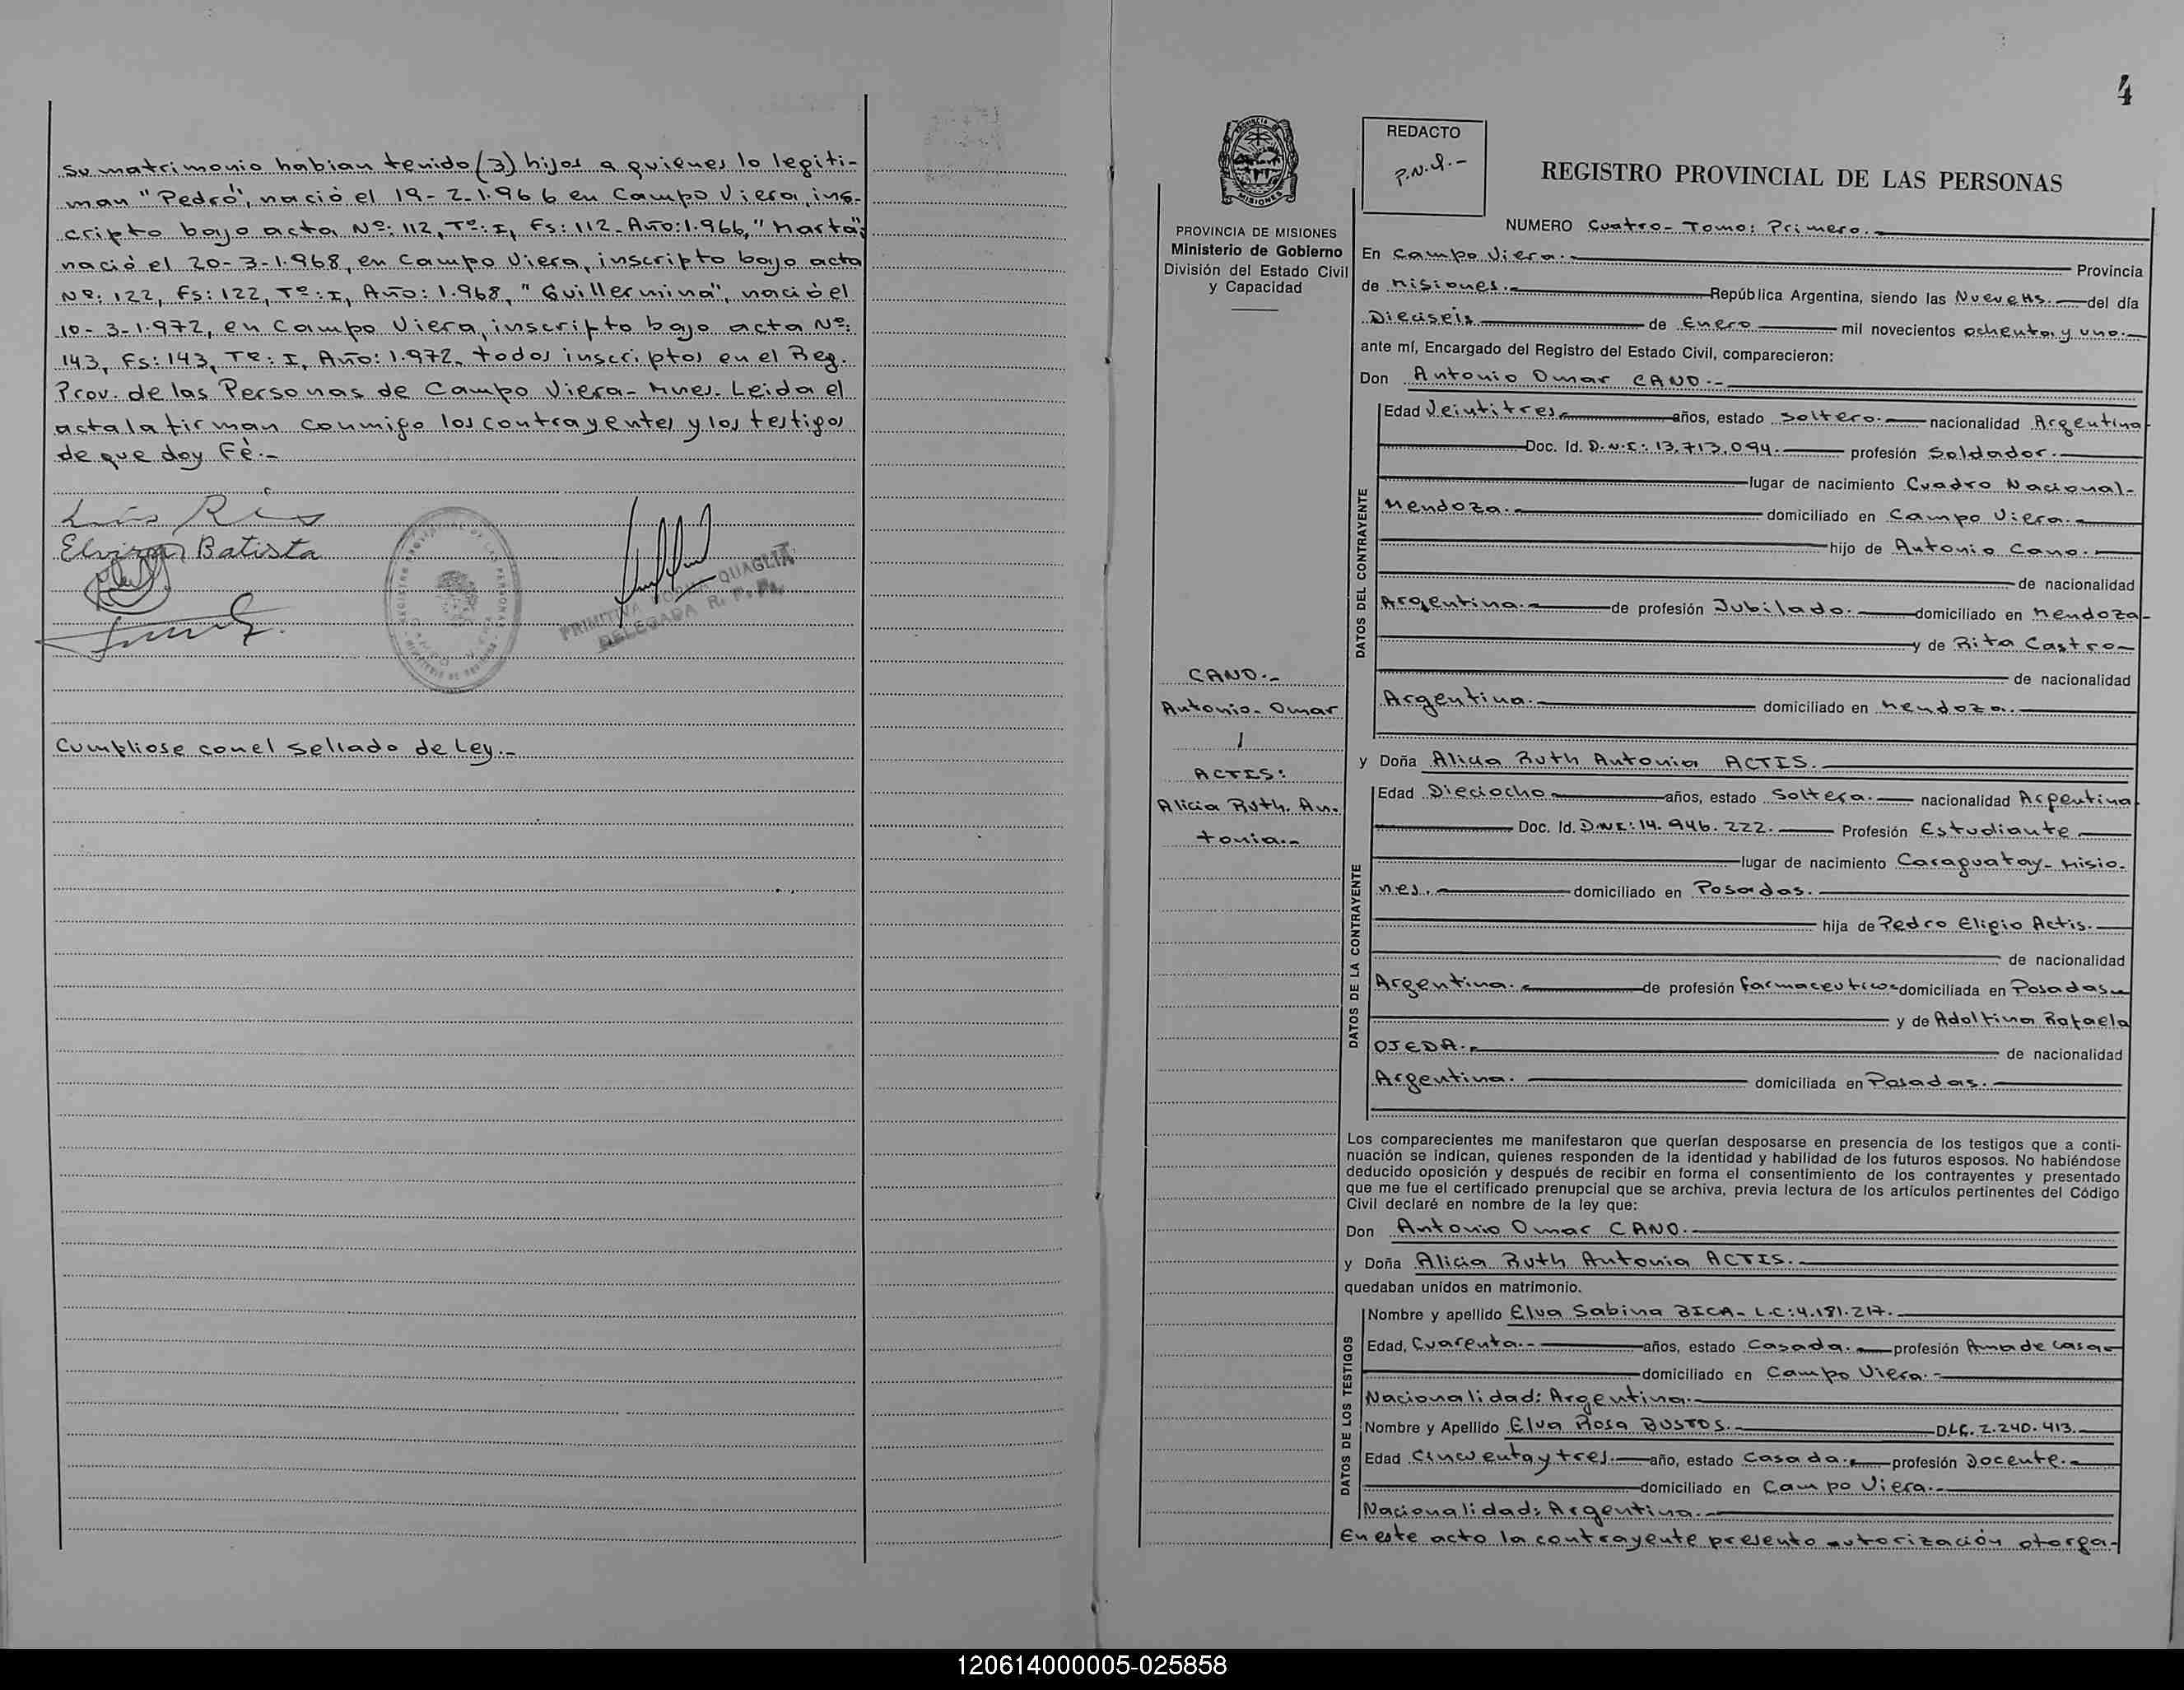 su matrimonio habian tenido (3) hijos a quienes lo legiti-
man "Pedro", nació el 19-2-1.966 en Campo Viera, ins-
cripto bajo acta Nº: 112, Tº: I, Fs: 112- Año: 1.966, "Marta",
nació el 20-3-1.968, en Campo Viera, inscripto bajo acta
Nº: 122, Fs: 122, Tº: I, Año: 1.968, "Guillermina", nació el
10-3-1.972, en Campo Viera, inscripto bajo acta Nº:
143, Fs: 143, Tº: I, Año: 1.972- todos inscriptos en el Reg.
Prov. de las Personas de Campo Viera- Mnes. Leida el
acta la firman conmigo los contrayentes y los testigos
de que doy Fé.-
Luis
Elvira Batista
PRIMITIVA QUAGLIA
DELEGADA R. P. P.
Cumpliose con el sellado de Ley.-
4
PROVINCIA DE MISIONES
Ministerio de Gobierno
División del Estado Civil
y Capacidad
REDACTO
REGISTRO PROVINCIAL DE LAS PERSONAS
NUMERO Cuatro- Tomo: Primero.-
En Campo Viera.- Provincia
de Misiones.- República Argentina, siendo las Nueve Hs.- del día
Dieciseis de Enero mil novecientos ochenta y uno.-
ante mí, Encargado del Registro del Estado Civil, comparecieron:
Don Antonio Omar CANO.-
DATOS DEL CONTRAYENTE
Edad Veintitres años, estado Soltero.- nacionalidad Argentina
Doc. Id. D.N.I: 13.713.094.- profesión Soldador.-
lugar de nacimiento Cuadro Nacional-
Mendoza.- domiciliado en Campo Viera.-
hijo de Antonio Cano.-
de nacionalidad
Argentina.- de profesión Jubilado.- domiciliado en Mendoza-
y de Rita Castro-
de nacionalidad
Argentina.- domiciliado en Mendoza.-
CANO.-
Antonio- Omar
/
ACTIS:
Alicia Ruth. An-
tonia.-
y Doña Alicia Ruth Antonia ACTIS.-
DATOS DE LA CONTRAYENTE
Edad Dieciocho años, estado Soltera.- nacionalidad Argentina
Doc. Id. D.N.I: 14.946.222.- Profesión Estudiante
lugar de nacimiento Caraguatay- Misio-
nes.- domiciliado en Posadas.-
hija de Pedro Eligio Actis.-
de nacionalidad
Argentina.- de profesión farmaceutico- domiciliada en Posadas-
y de Adolfina Rafaela
OJEDA.- de nacionalidad
Argentina.- domiciliada en Posadas.-
Los comparecientes me manifestaron que querían desposarse en presencia de los testigos que a conti-
nuación se indican, quienes responden de la identidad y habilidad de los futuros esposos. No habiéndose
deducido oposición y después de recibir en forma el consentimiento de los contrayentes y presentado
que me fue el certificado prenupcial que se archiva, previa lectura de los artículos pertinentes del Código
Civil declaré en nombre de la ley que:
Don Antonio Omar CANO.-
y Doña Alicia Ruth Antonia ACTIS.-
quedaban unidos en matrimonio.
DATOS DE LOS TESTIGOS
Nombre y apellido Elva Sabina BICA- L.C: 4.181.217.-
Edad, Cuarenta.- años, estado Casada.- profesión Ama de casa-
domiciliado en Campo Viera.-
Nacionalidad: Argentina.-
Nombre y Apellido Elva Rosa BUSTOS.- 2.240.413.-
Edad Cincuenta y tres.- año, estado Casada.- profesión Docente.-
domiciliado en Campo Viera.-
Nacionalidad: Argentina.-
En este acto la contrayente presento autorización otorga-
120614000005-025858